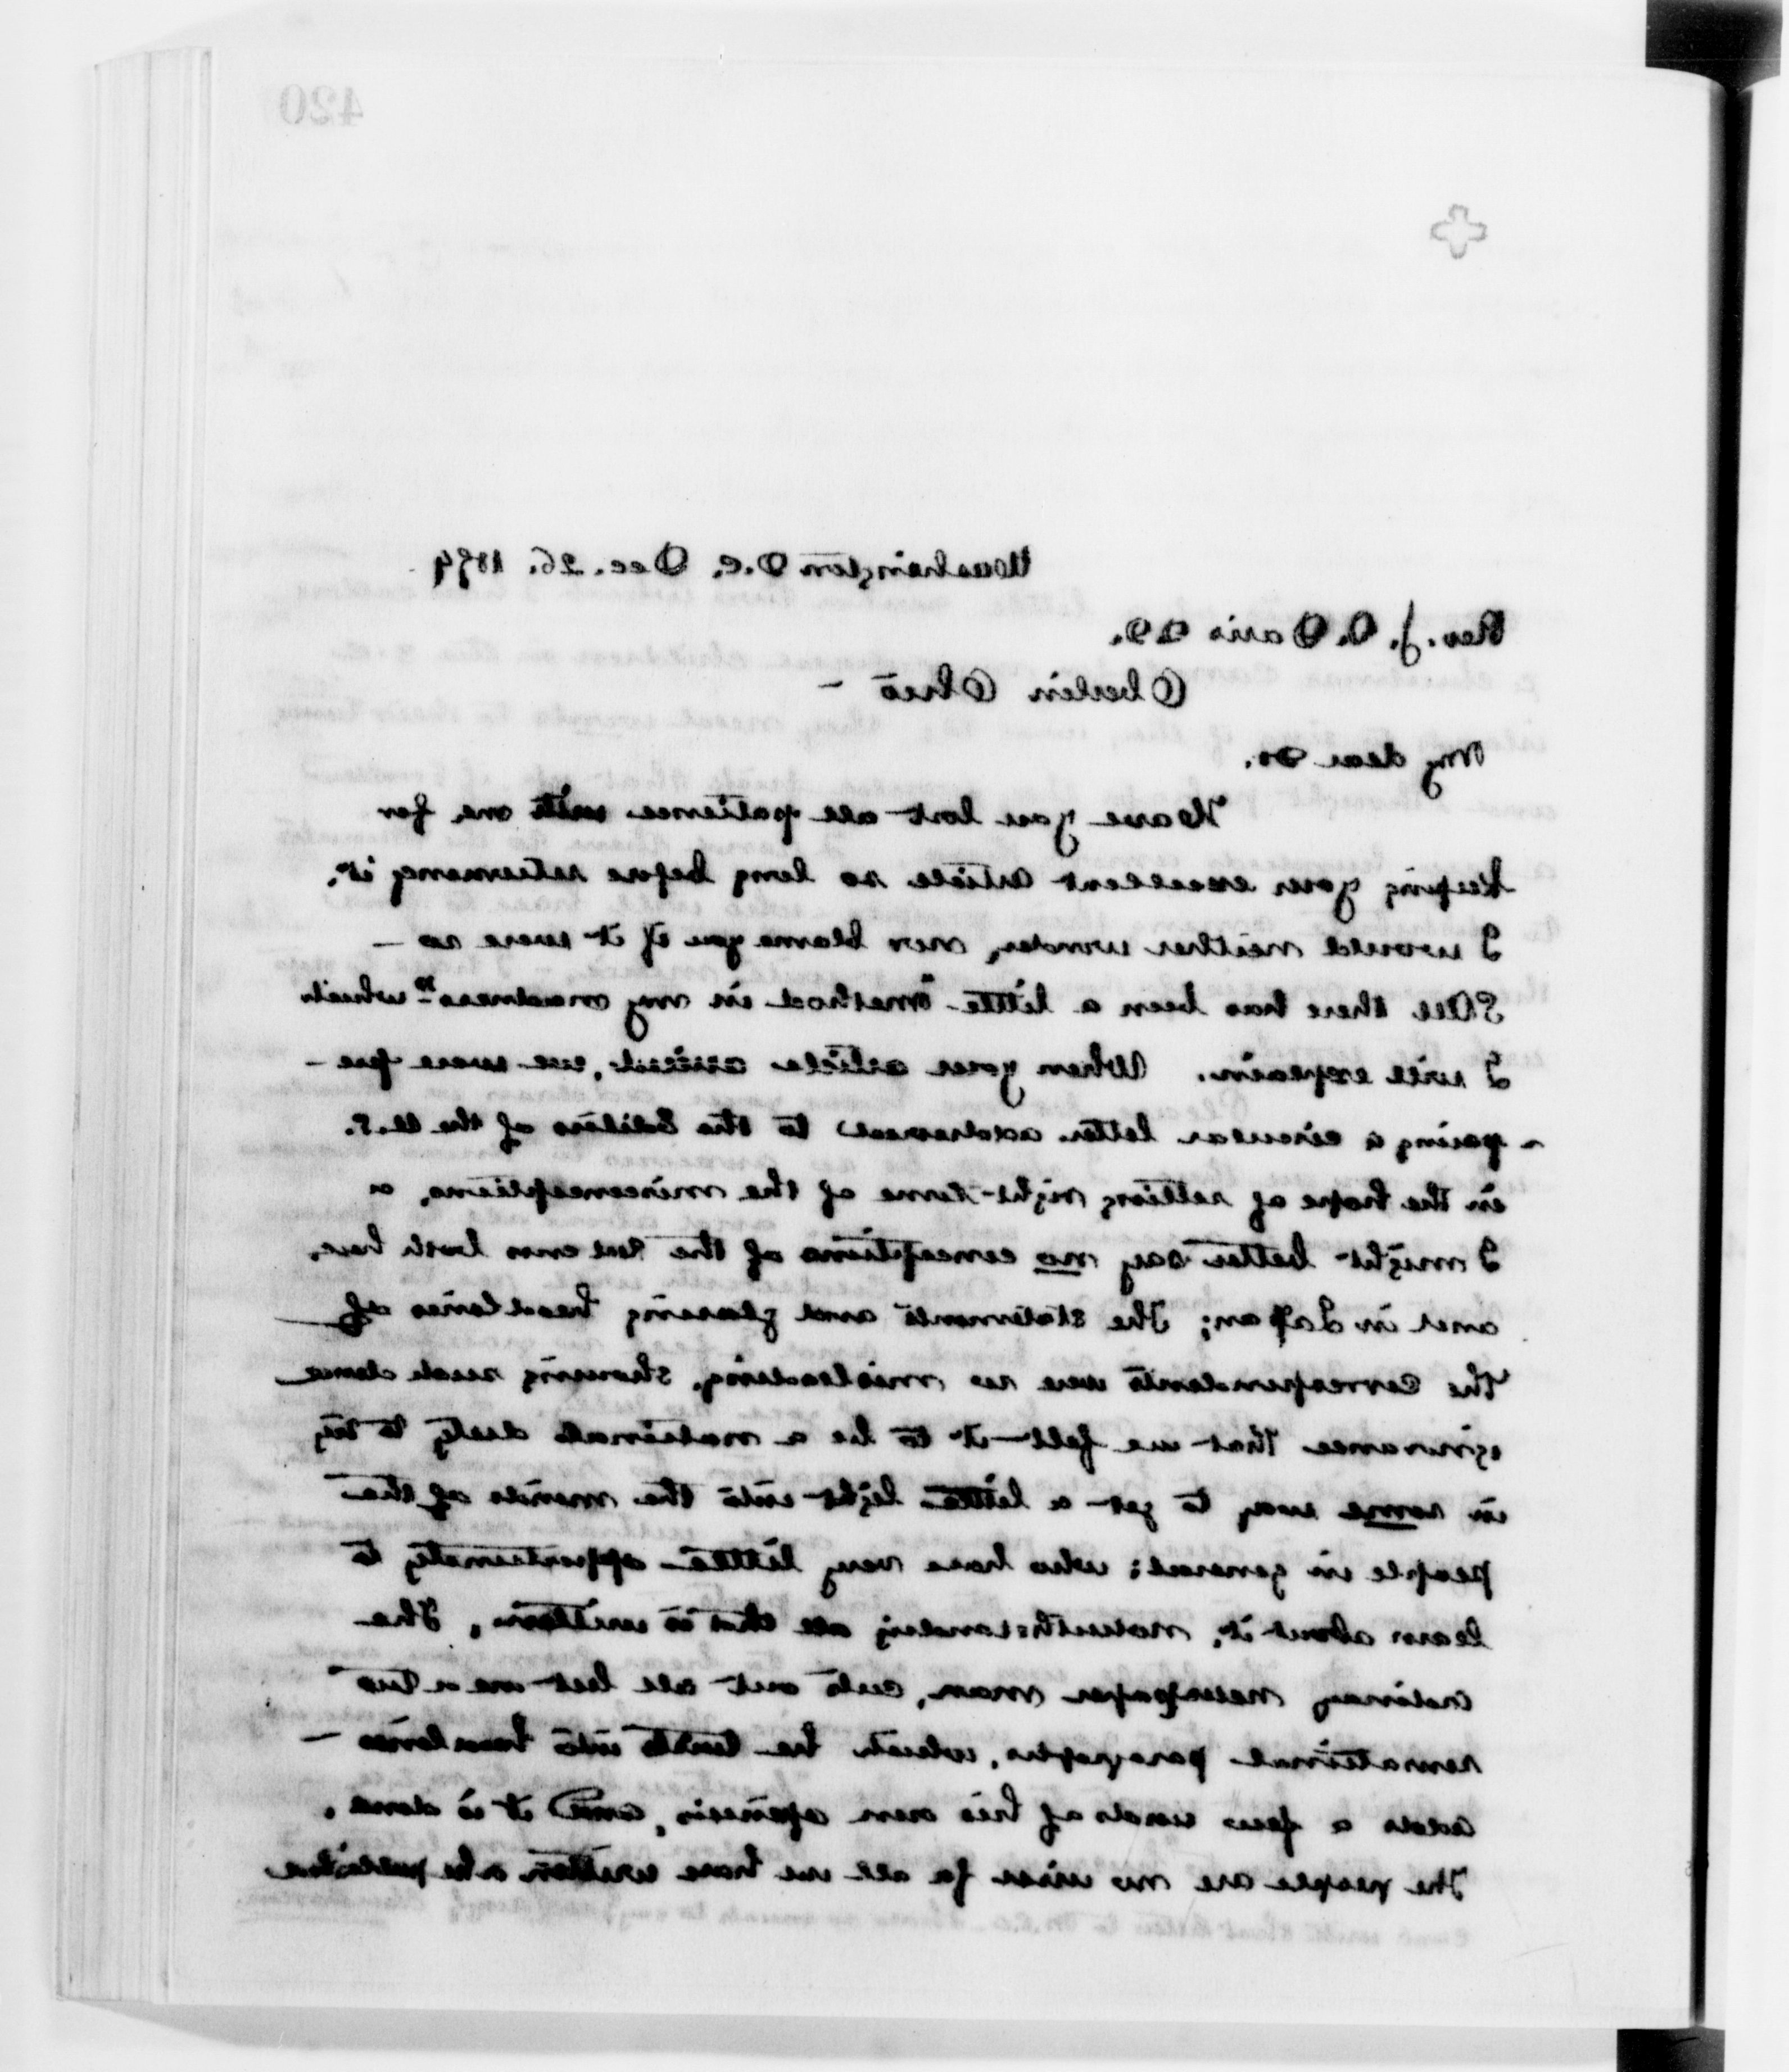 420
Washington D.C. Dec. 26. 1894
Rev. J. D. Davis D.D.
Oberlin Ohio –
My dear Dr.
Have you lost all patience with me for
keeping your excellent article so long before returning it.
I would neither wonder, nor blame you if it were so –
Still there has been a little "method in my madness" which
I will explain. When your article arrived, we were pre–
paring a circular letter addressed to the Editors of the U.S.
in the hope of setting right some of the misconceptions, or
I might better say no conceptions of the Red Cross both here,
and in Japan; The statements and glaring headlines of
the correspondents were so misleading, showing such dense
ignorance that we felt it to be a national duty to try
in some way to get a little light into the minds of the
people in general; who have very little opportunity to
learn about it, notwithstanding all that is written, The
ordinary newspaper man, cuts out all but one or two
sensational paragraphs, which he twists into headlines –
adds a few words of his own opinion, and it is done.
The people are no wiser for all we have written or he published